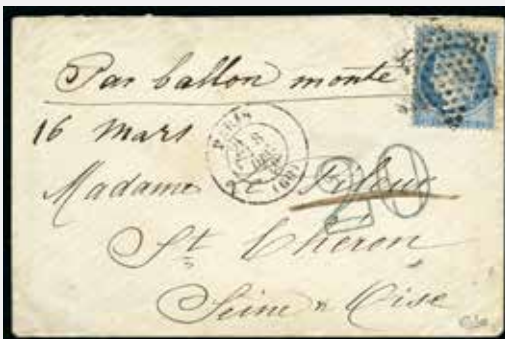 Par ballon monté
16 mars
PARIS
(60)
20
Madame
St Cheron
Seine & Oise